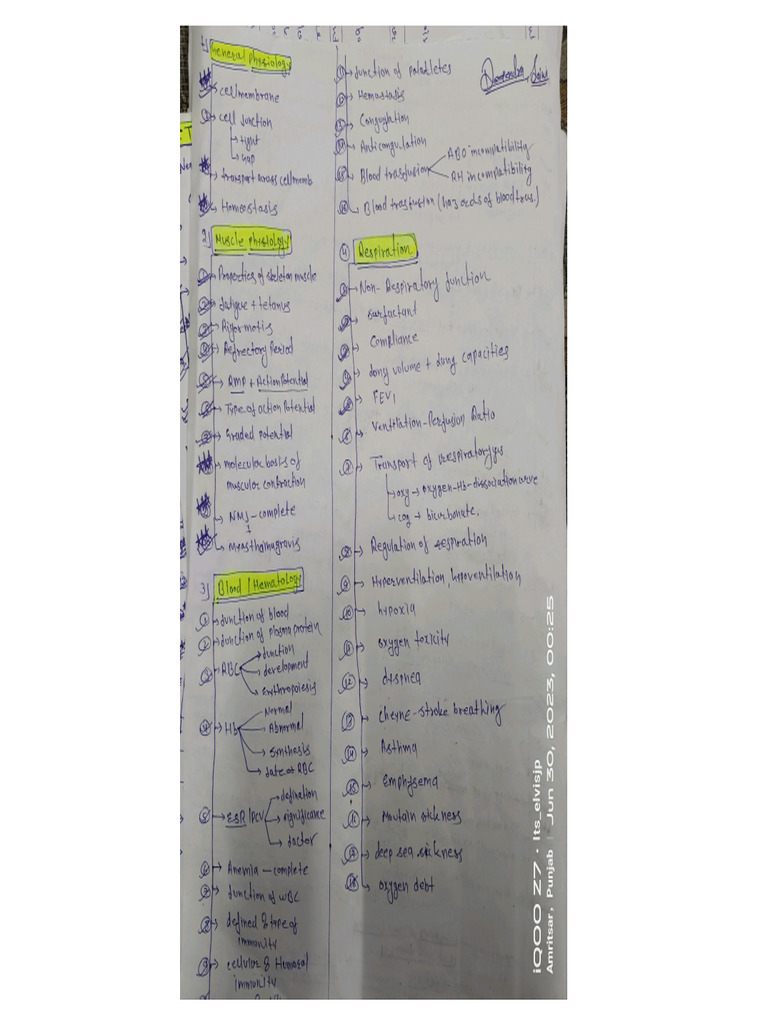 1) General Physiology
cell membrane
cell junction
tight
gap
transport across cell memb
Homeostasis
2) Muscle Physiology
① Properties of skeleton muscle
② fatigue + tetonus
③ Rigor mortis
④ Refrectory Period
⑤ RMP + Action Potential
⑥ Type of action Potential
⑦ Graded potential
molecular basis of
muscular contraction
NMJ - complete
measthaimugravis
3) Blood / Hematology
① function of blood
② function of plasma protein
③ RBC
function
development
Erthropoiesis
④ Hb
Normal
Abnormal
synthesis
fate of RBC
⑤ ESR/PCV
defination
significance
factor
⑥ Anemia - complete
⑦ function of WBC
⑧ defined & type of
immunity
⑨ cellular & Humoral
immunity
function of palatletes
Hemostasis
Congulation
Anticongulation
Blood trasfusion
ABO incompatibility
RH incompatibility
Blood trasfusion (hazards of blood trans.)
4) Respiration
① Non-Respiratory function
② surfactant
③ Compliance
④ lung volume + lung capacities
⑤ FEV1
⑥ Ventilation-Perfusion Ratio
⑦ Transport of respiratory gas
oxy → oxygen-Hb-dissociation curve
co2 → bicarbonate.
⑧ Regulation of respiration
⑨ Hyperventilation, hypoventilation
⑩ hypoxia
⑪ oxygen toxicity
⑫ dispnea
⑬ cheyne-stroke breathing
⑭ Asthma
⑮ Emphysema
⑯ Moutain sickness
⑰ deep sea sickness
⑱ oxygen debt
iQOO Z7 · Its_elvisjp
Amritsar, Punjab | Jun 30, 2023, 00:25